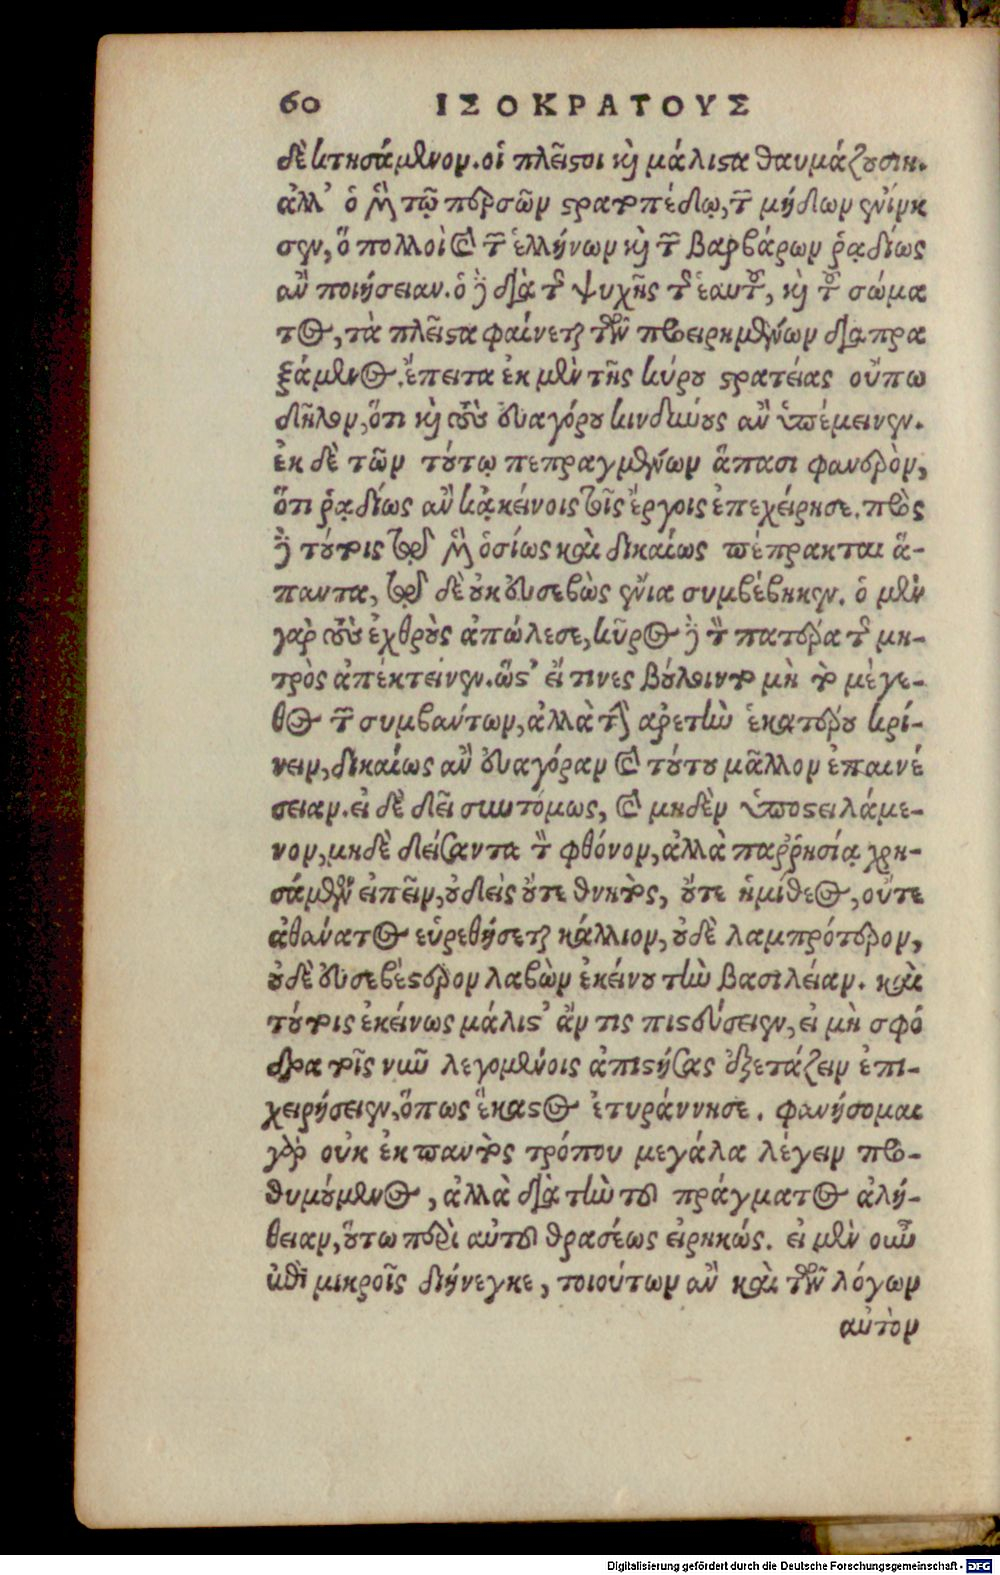 60 ΙΣΟΚΡΑΤΟΥΣ
δὲ κτησάμενον. οἱ πλεῖστοι καὶ μάλιστα θαυμάζουσιν.
ἀλλ' ὁ μὲν τῷ περσῶν στρατοπέδῳ, τὸ μήδων ἐνίκη
σεν, ὃ πολλοὶ καὶ τῶν ἑλλήνων καὶ τῶν βαρβάρων ῥᾳδίως
ἂν ποιήσειαν. ὁ δὲ διὰ τῆς ψυχῆς τῆς ἑαυτοῦ, καὶ τοῦ σώμα
τος, τὰ πλεῖστα φαίνεται τῶν προειρημένων διαπρα
ξάμενος. ἔπειτα ἐκ μὲν τῆς κύρου στρατείας οὔπω
δῆλον, ὅτι καὶ τοὺς εὐαγόρου κινδύνους ἂν ὑπέμεινεν.
ἐκ δὲ τῶν τούτῳ πεπραγμένων ἅπασι φανερὸν,
ὅτι ῥᾳδίως ἂν κᾀκείνοις τοῖς ἔργοις ἐπεχείρησε. πρὸς
δὲ τούτοις τῷ μὲν ὁσίως καὶ δικαίως πέπρακται ἅ-
παντα, τῷ δὲ οὐκ εὐσεβῶς ἔνια συμβέβηκεν. ὁ μὲν
γὰρ τοὺς ἐχθροὺς ἀπώλεσε, κῦρος δὲ τὸν πατέρα τῆς μη-
τρὸς ἀπέκτεινεν. ὥστ' εἴ τινες βούλοιντο μὴ τὸ μέγε-
θος τῶν συμβάντων, ἀλλὰ τὴν ἀρετὴν ἑκατέρου κρί-
νειν, δικαίως ἂν εὐαγόραν καὶ τούτου μᾶλλον ἐπαινέ
σειαν. εἰ δὲ δεῖ συντόμως, καὶ μηδὲν ὑποστειλάμε-
νον, μηδὲ δείσαντα τὸν φθόνον, ἀλλὰ παῤῥησίᾳ χρη-
σάμενον εἰπεῖν, οὐδεὶς οὔτε θνητὸς, οὔτε ἡμίθεος, οὔτε
ἀθάνατος εὑρεθήσεται κάλλιον, οὐδὲ λαμπρότερον,
οὐδὲ εὐσεβέστερον λαβὼν ἐκείνου τὴν βασιλείαν. καὶ
τούτοις ἐκείνως μάλιστ' ἄν τις πιστεύσειεν, εἰ μὴ σφό
δρα τοῖς νῦν λεγομένοις ἀπιστήσας ἐξετάζειν ἐπι-
χειρήσειεν, ὅπως ἕκαστος ἐτυράννησε. φανήσομαι
γὰρ οὐκ ἐκ παντὸς τρόπου μεγάλα λέγειν προ-
θυμούμενος, ἀλλὰ διὰ τὴν τοῦ πράγματος ἀλή-
θειαν, οὕτω περὶ αὐτοῦ θρασέως εἰρηκώς. εἰ μὲν οὖν
ἐπὶ μικροῖς διήνεγκε, τοιούτων ἂν καὶ τῶν λόγων
αὐτὸν
Digitalisierung gefördert durch die Deutsche Forschungsgemeinschaft - DFG